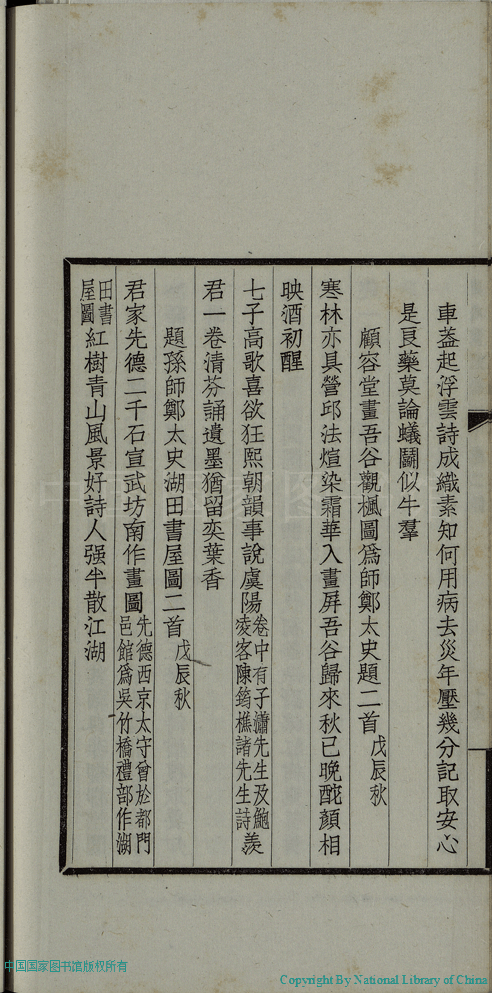 車蓋起浮雲詩成織素知何用病去災年壓幾分記取安心
是良藥莫論蟻鬭似牛羣
顧容堂畫吾谷觀楓圖爲師鄭太史題二首戊辰秋
寒林亦具營邱法煊染霜華入畫屏吾谷歸來秋已晚酡顏相
映酒初醒
七子高歌喜欲狂熙朝韻事說虞陽卷中有子瀟先生及鮑淩客陳筠樵諸先生詩羨
君一卷清芬誦遺墨猶留奕葉香
題孫師鄭太史湖田書屋圖二首戊辰秋
君家先德二千石宣武坊南作畫圖先德西京太守曾於都門邑館爲吳竹橋禮部作湖
田書屋圖紅樹青山風景好詩人强半散江湖
中国国家图书馆版权所有
Copyright By National Library of China